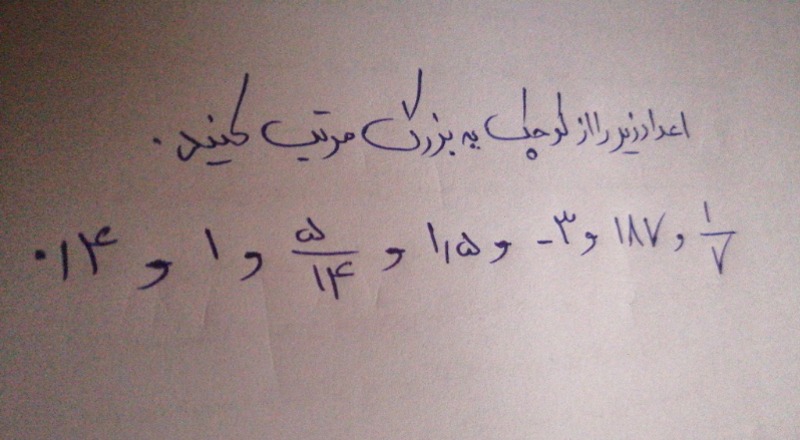 اعداد زیر را از کوچک به بزرگ مرتب کنید.
۱/۷ و ۱۸۷ و -۳ و ۱٫۵ و ۵/۱۴ و ۱ و ۰٫۴